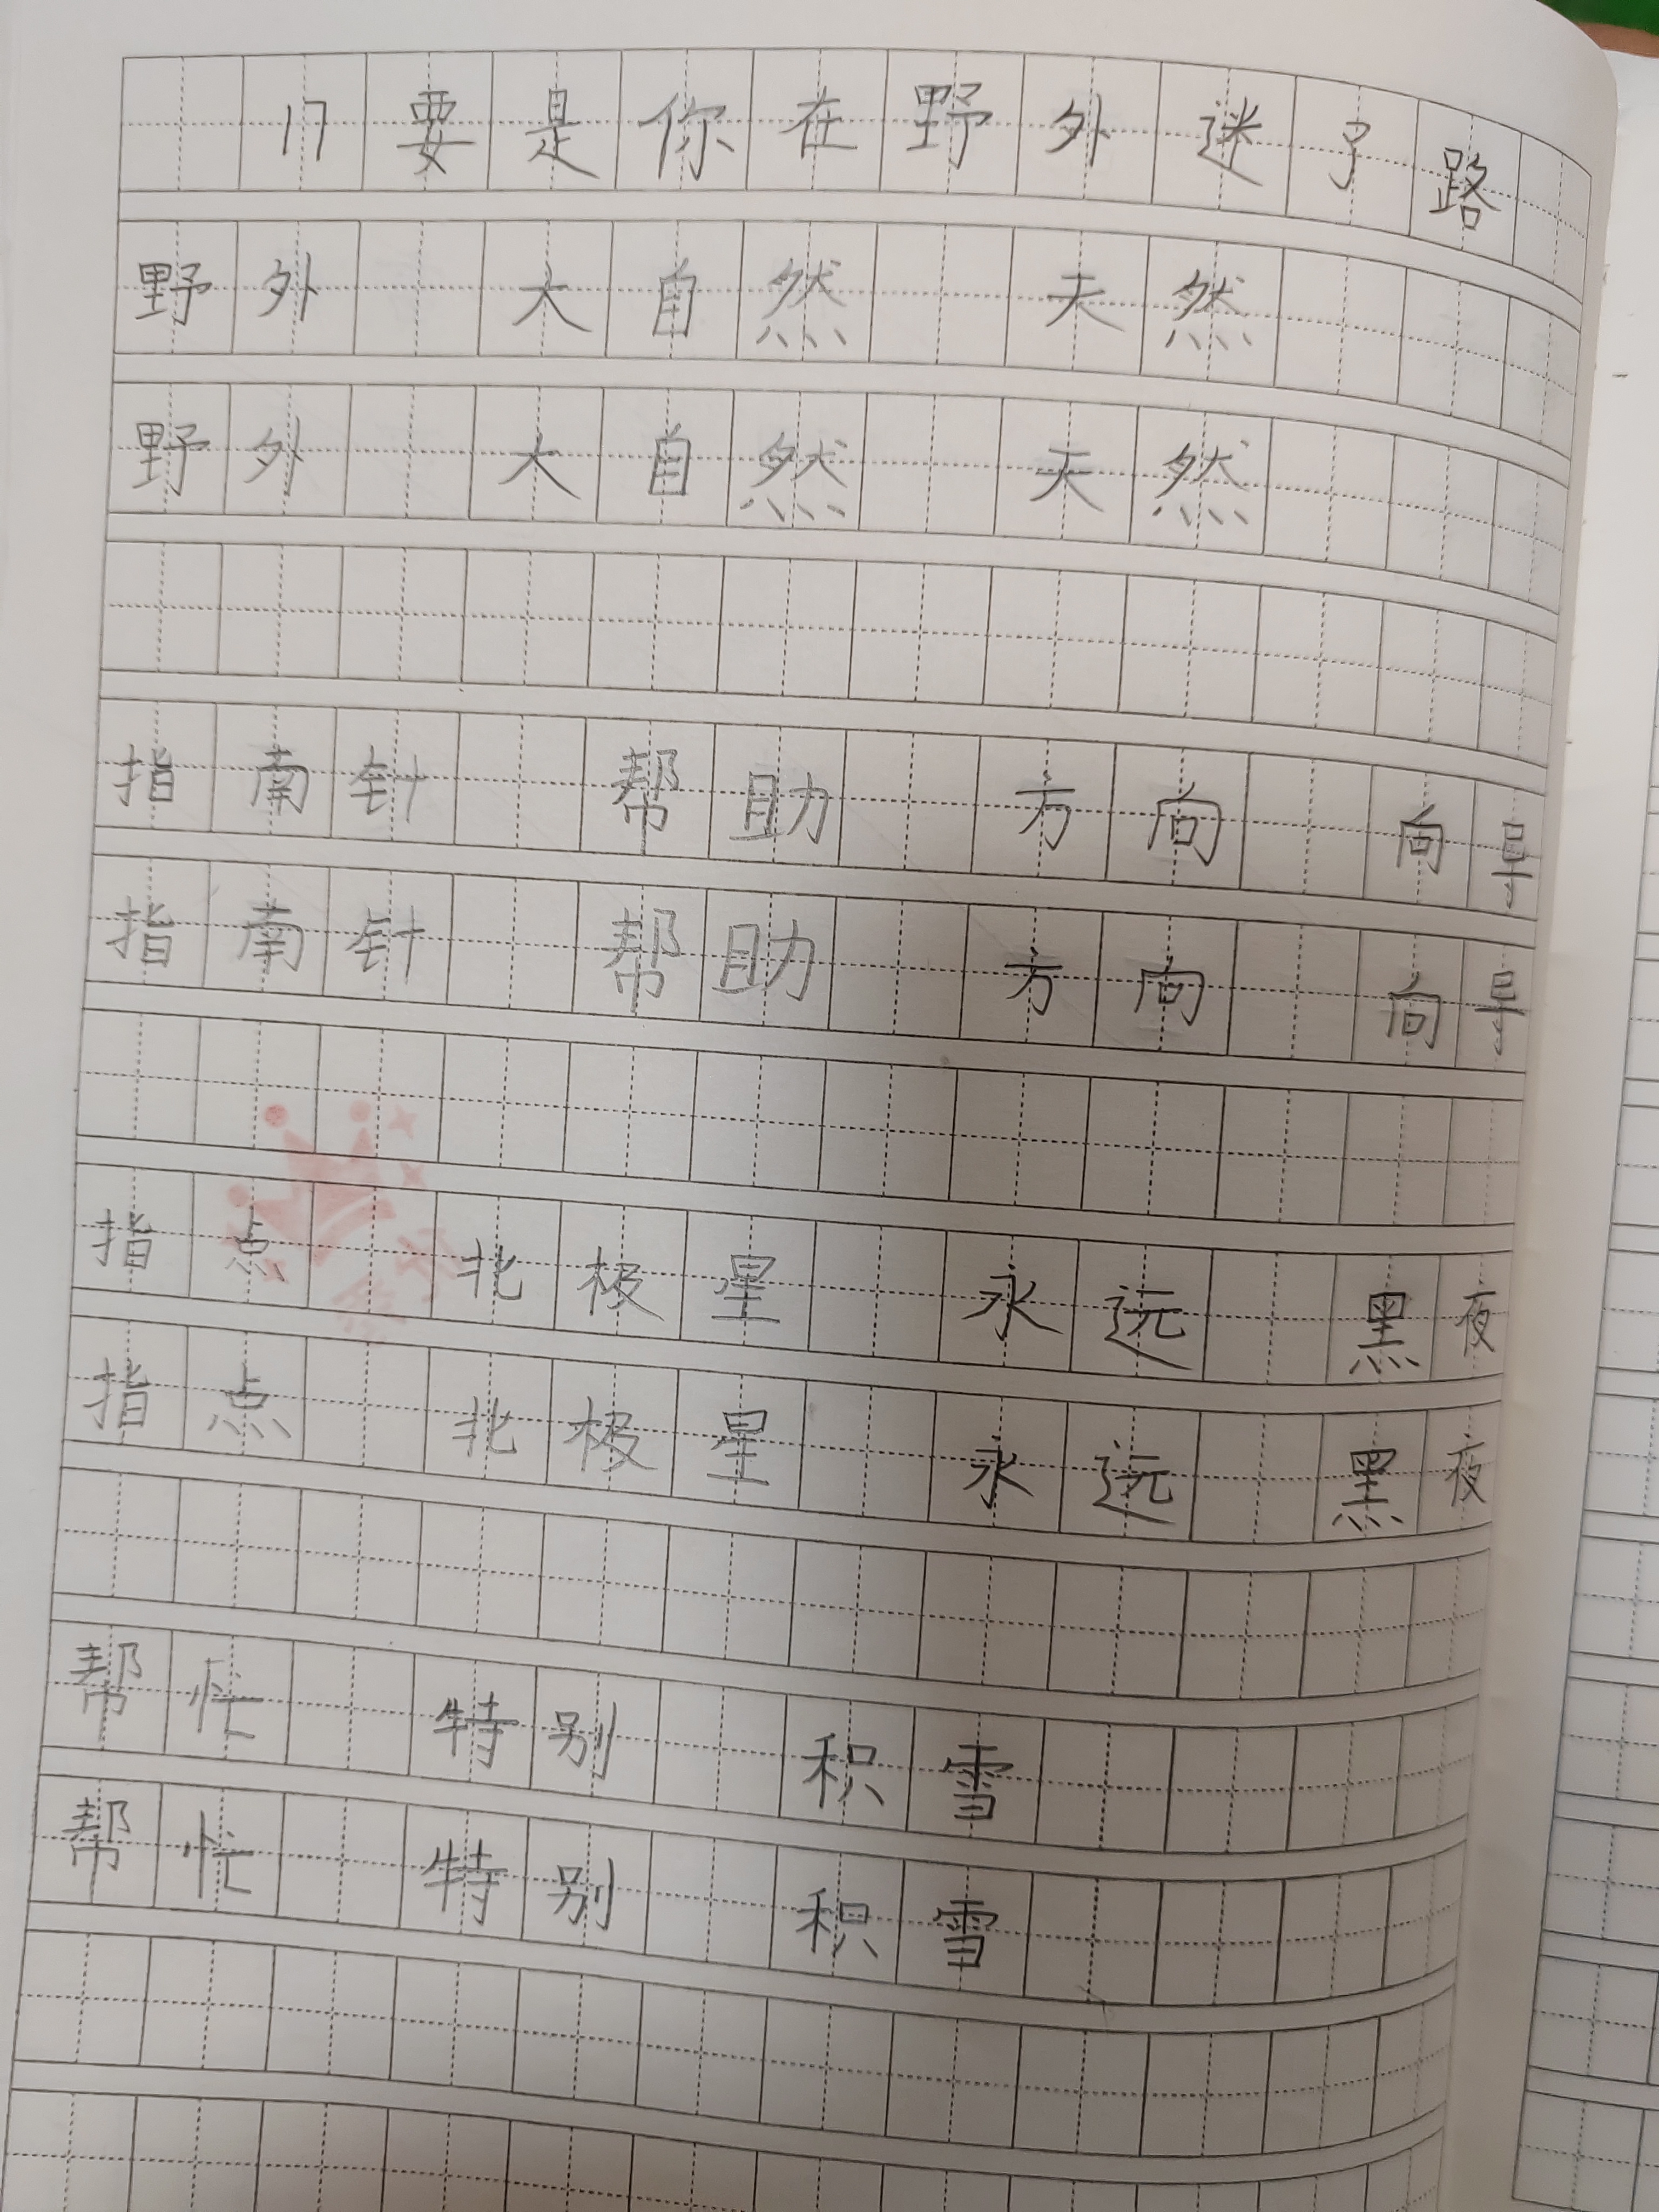 17要是你在野外迷了路
野外 大自然 天然
野外 大自然 天然
指南针 帮助 方向 向导
指南针 帮助 方向 向导
指点 北极星 永远 黑夜
指点 北极星 永远 黑夜
帮忙 特别 积雪
帮忙 特别 积雪